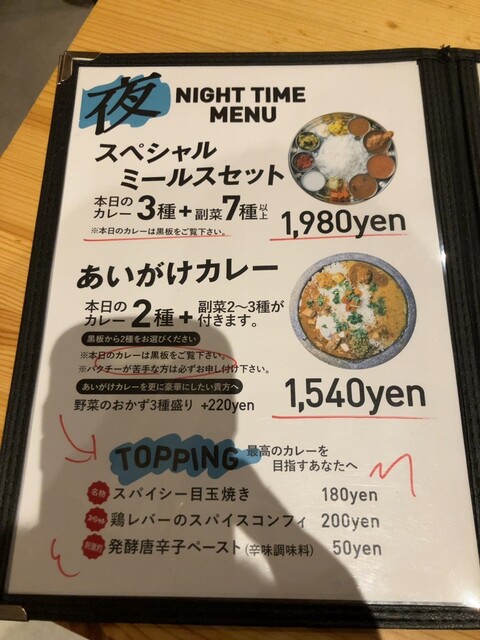 夜 NIGHT TIME
MENU
スペシャル
ミールスセット
本日の
カレー 3種 + 副菜 7種 以上
※本日のカレーは黒板をご覧下さい。
1,980yen
あいがけカレー
本日の
カレー 2種 + 副菜2〜3種が
付きます。
黒板から2種をお選びください
※本日のカレーは黒板をご覧下さい。
※パクチーが苦手な方は必ずお申し付け下さい。
あいがけカレーを更に豪華にしたい貴方へ
野菜のおかず3種盛り +220yen
1,540yen
TOPPING 最高のカレーを
目指すあなたへ
名物 スパイシー目玉焼き 180yen
鶏レバーのスパイスコンフィ 200yen
発酵唐辛子ペースト (辛味調味料) 50yen